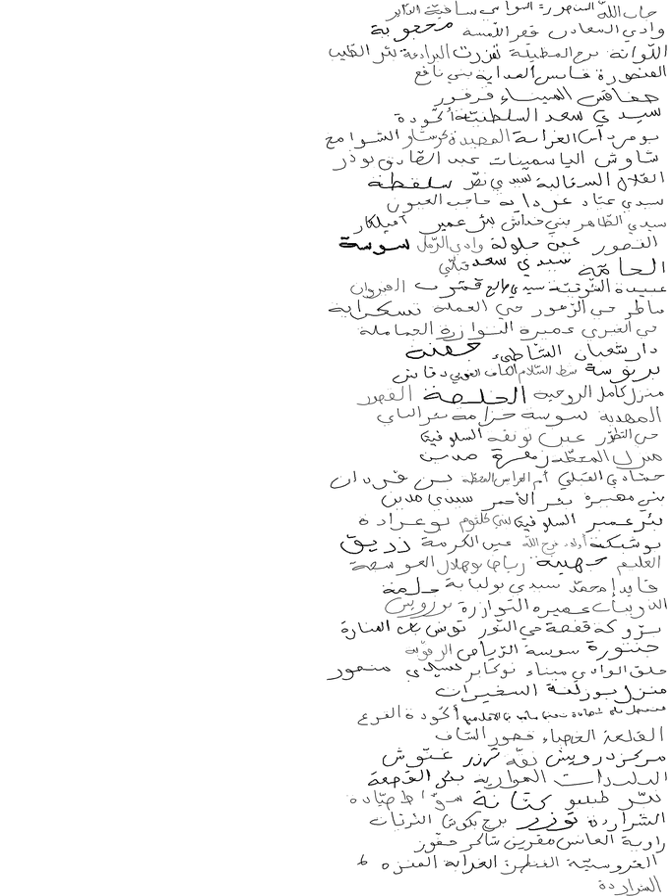 جاب الله المنصورة الشوامي ساقية الدائر
وادي السعادين قصر اللمسة محجوبة
اللوانة برج الحطيلة تمزرت البرادعة بئر الطيب
المنصورة قابس العداية بني نافع
صفاقس الميناء قرقور
سيدي سعد السلطنية أكودة
بومرداس الغرابة المصيدة الشوامخ
شاوش الياسمينات عبد الصادق بوذر
القلال السرفالية سيدي نصر سلقطة
سيدي عباد غرداية حاجب العيون
سيدي الظاهر بني خداش بئر عمير أميلكار
القصور عين جلولة وادي الرمل سوسة
الحامة سيدي سعد قبلي
عبيدة الشرقية سيدي صالح قمرت القيروان
ماطر حي الزهور حي العملة تسكراية
حي الخيري عميرة التوازرة الحماملة
دار شعبان الشاطئ جهينة
برنوسة شط السلام الكاف الغربي دقاش
منزل كامل الروحية الخليصة القصور
المهدية سوسة حزامة بئر الباي
حي التطور عين نونفة السلوقية
منزل المحطة زهرة مدنين
حمادي القبلي أم العرايس المحطة بن قردان
بني مهيرة بئر الأحمر سيدي مدين
بئر عمير السلوقية بني كلثوم بوغرارة
بوشبكة أولاد فرج الله عين الكرمة زريق
الغليم جهينة رياض بوهلال العوسجة
قايد امحمد سيدي بولبابة جلمة
الذريبات عميرة التوازرة بورويس
بروكة قفصة حي النور تونس باب المنارة
جندورة سوسة الرياض الرقوبة
حلق الوادي ميناء نوكابر سيدي منصور
منزل بورلقة السغيرات
أكودة الفرع
القلعة الخصباء قصور الساف
مركز درويش نقة توزر غنوش
البلدات الهوارية بطن القصعة
نصر طبلبو كتانة سوق صيادة
الشرايرة توزر برج بكوش الثريات
زاوية العانس مقرين شاكر حفوز
العروسية الفنطرن الغرابة المنزه ط
الشرايردة